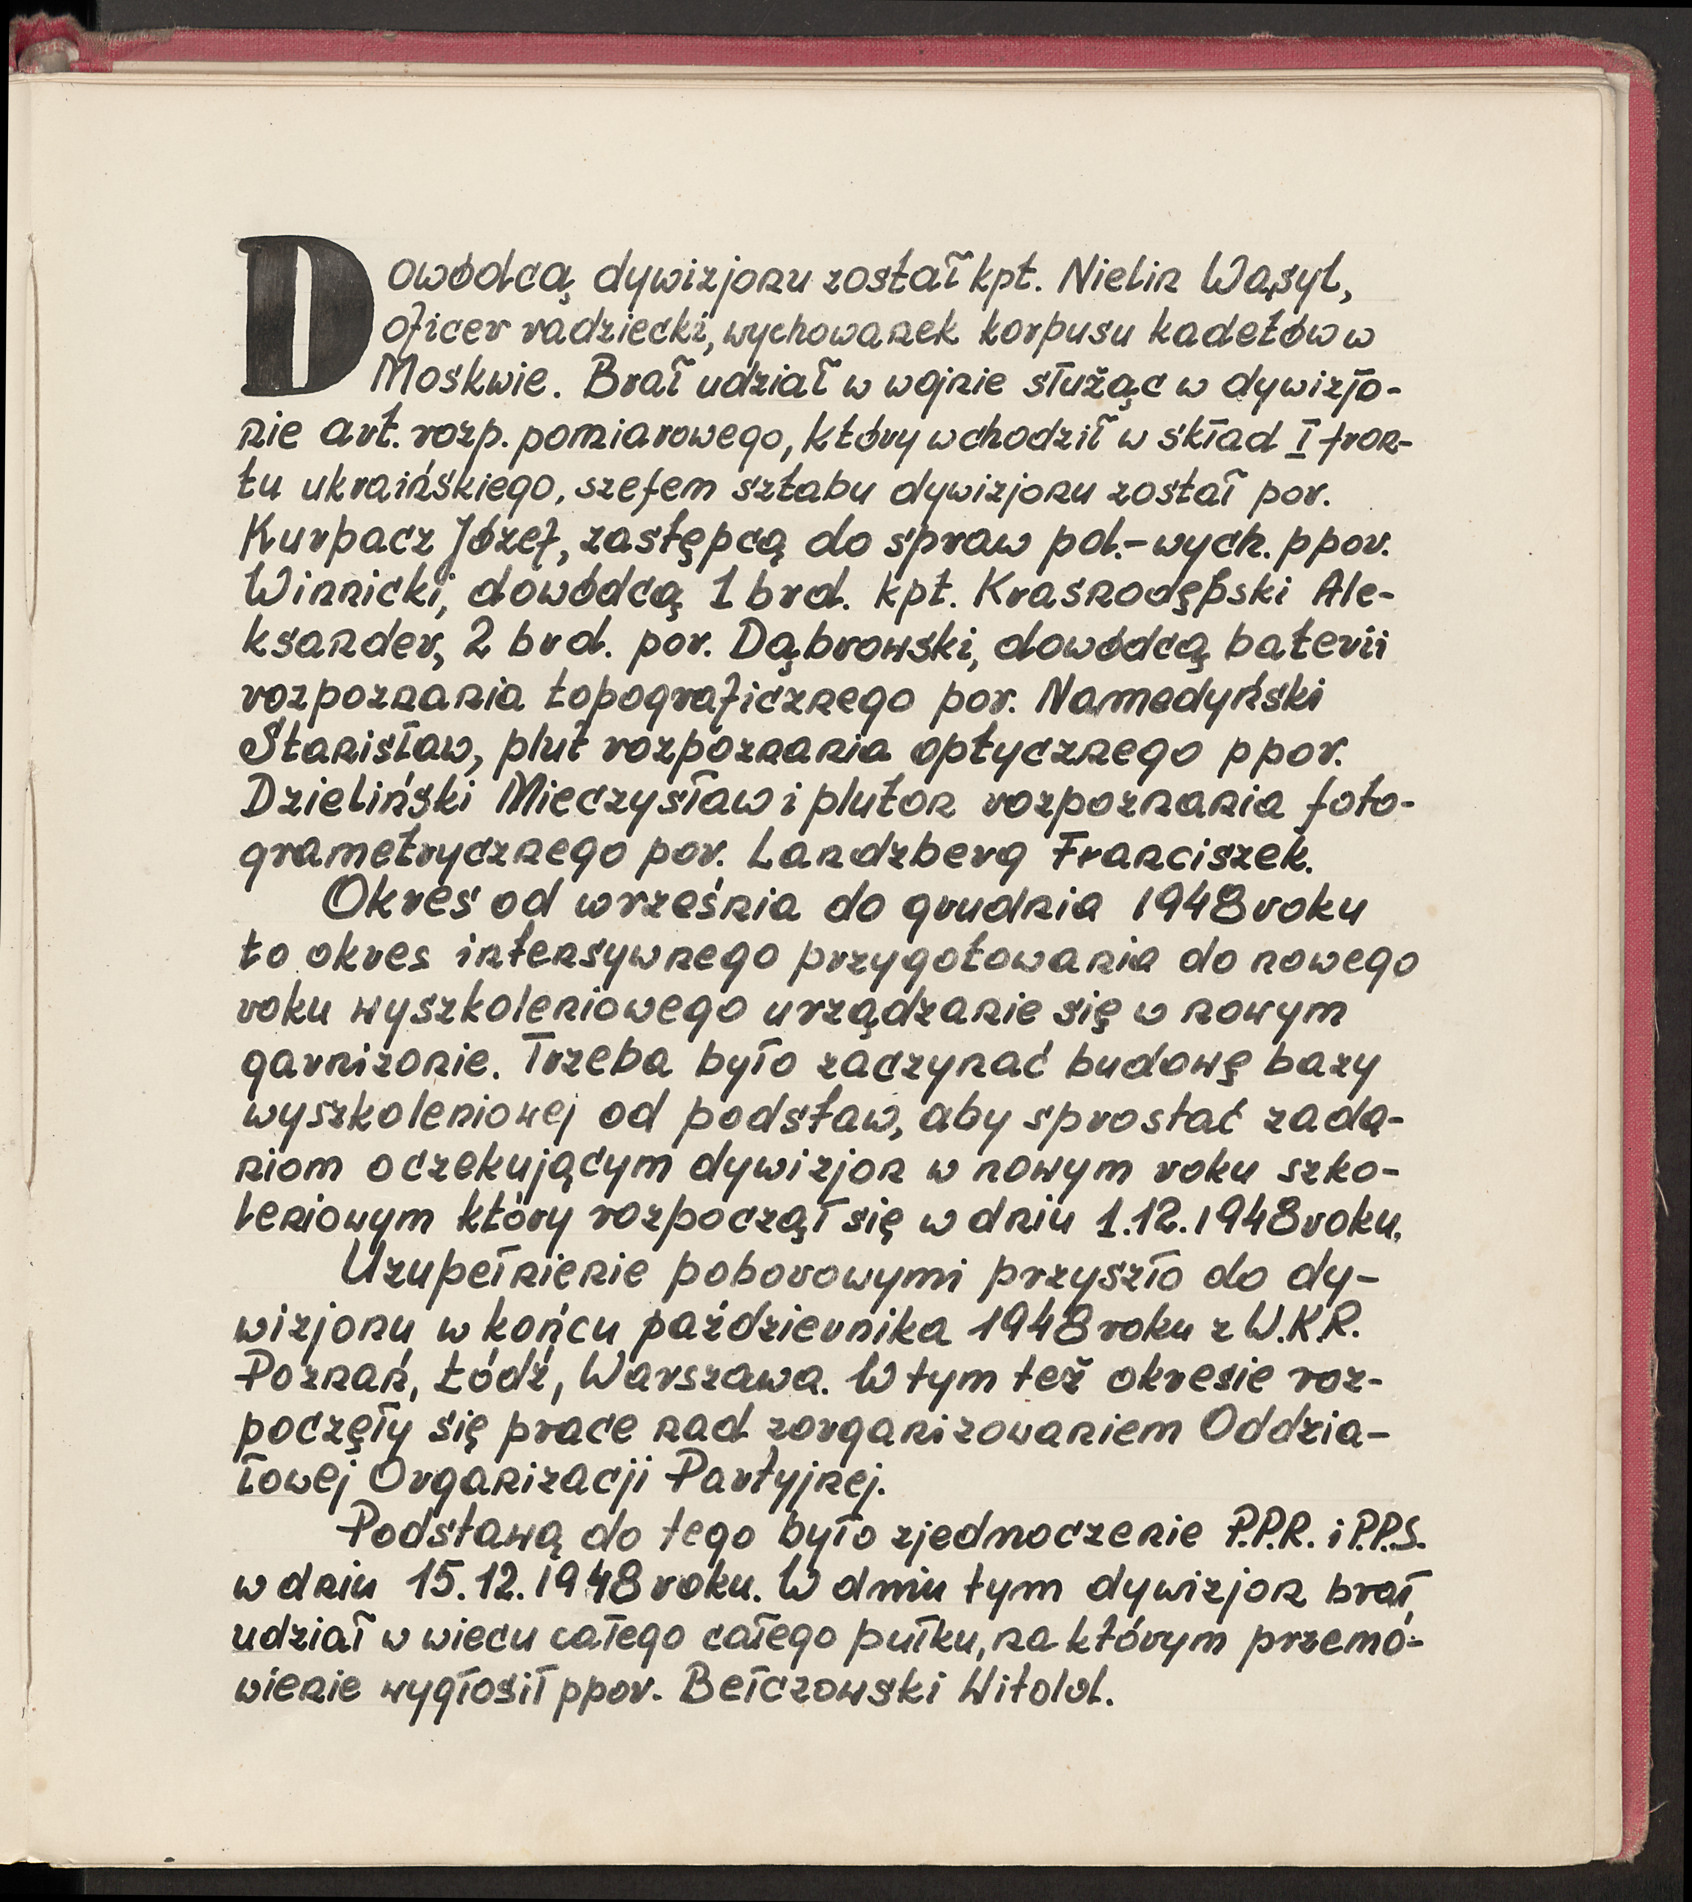 Dowódcą dywizjonu został kpt. Nielin Wasyl,
oficer radziecki, wychowanek korpusu kadetów w
Moskwie. Brał udział w wojnie służąc w dywizjo-
nie art. rozp. pomiarowego, który wchodził w skład I fron-
tu ukraińskiego, szefem sztabu dywizjonu został por.
Kurpacz Józef, zastępcą do spraw pol.-wych. ppor.
Winnicki, dowódcą 1 brd. kpt. Krasnodębski Ale-
ksander, 2 brd. por. Dąbrowski, dowódcą baterii
rozpoznania topograficznego por. Namedyński
Stanisław, plut rozpoznania optycznego ppor.
Dzieliński Mieczysław i pluton rozpoznania foto-
grametrycznego por. Landzberg Franciszek.
Okres od września do grudnia 1948 roku
to okres intensywnego przygotowania do nowego
roku wyszkoleniowego urządzanie się w nowym
garnizonie. Trzeba było zaczynać budowę bazy
wyszkoleniowej od podstaw, aby sprostać zada-
niom oczekującym dywizjon w nowym roku szko-
leniowym który rozpoczął się w dniu 1.12.1948 roku.
Uzupełnienie poborowymi przyszło do dy-
wizjonu w końcu października 1948 roku z W.K.R.
Poznań, Łódź, Warszawa. W tym też okresie roz-
poczęły się prace nad zorganizowaniem Oddzia-
łowej Organizacji Partyjnej.
Podstawą do tego było zjednoczenie P.P.R. i P.P.S.
w dniu 15.12.1948 roku. W dniu tym dywizjon brał
udział w wiecu całego całego pułku, na którym przemó-
wienie wygłosił ppor. Bełczowski Witold.